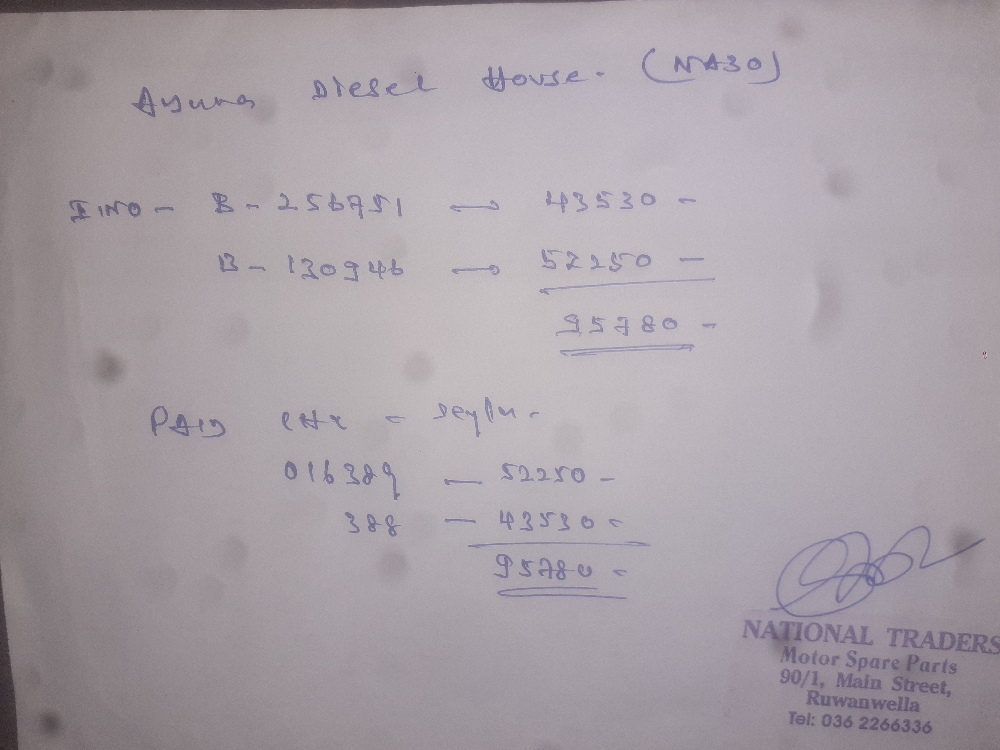 Ayuna Diesel House. (NA30)
INO - B - 256751 → 43530 -
B - 130946 → 52250 -
95780 -
PAID CHE - Seylan -
016389 - 52250 -
388 - 43530 -
95780 -
NATIONAL TRADERS
Motor Spare Parts
90/1, Main Street,
Ruwanwella
Tel: 036 2266336